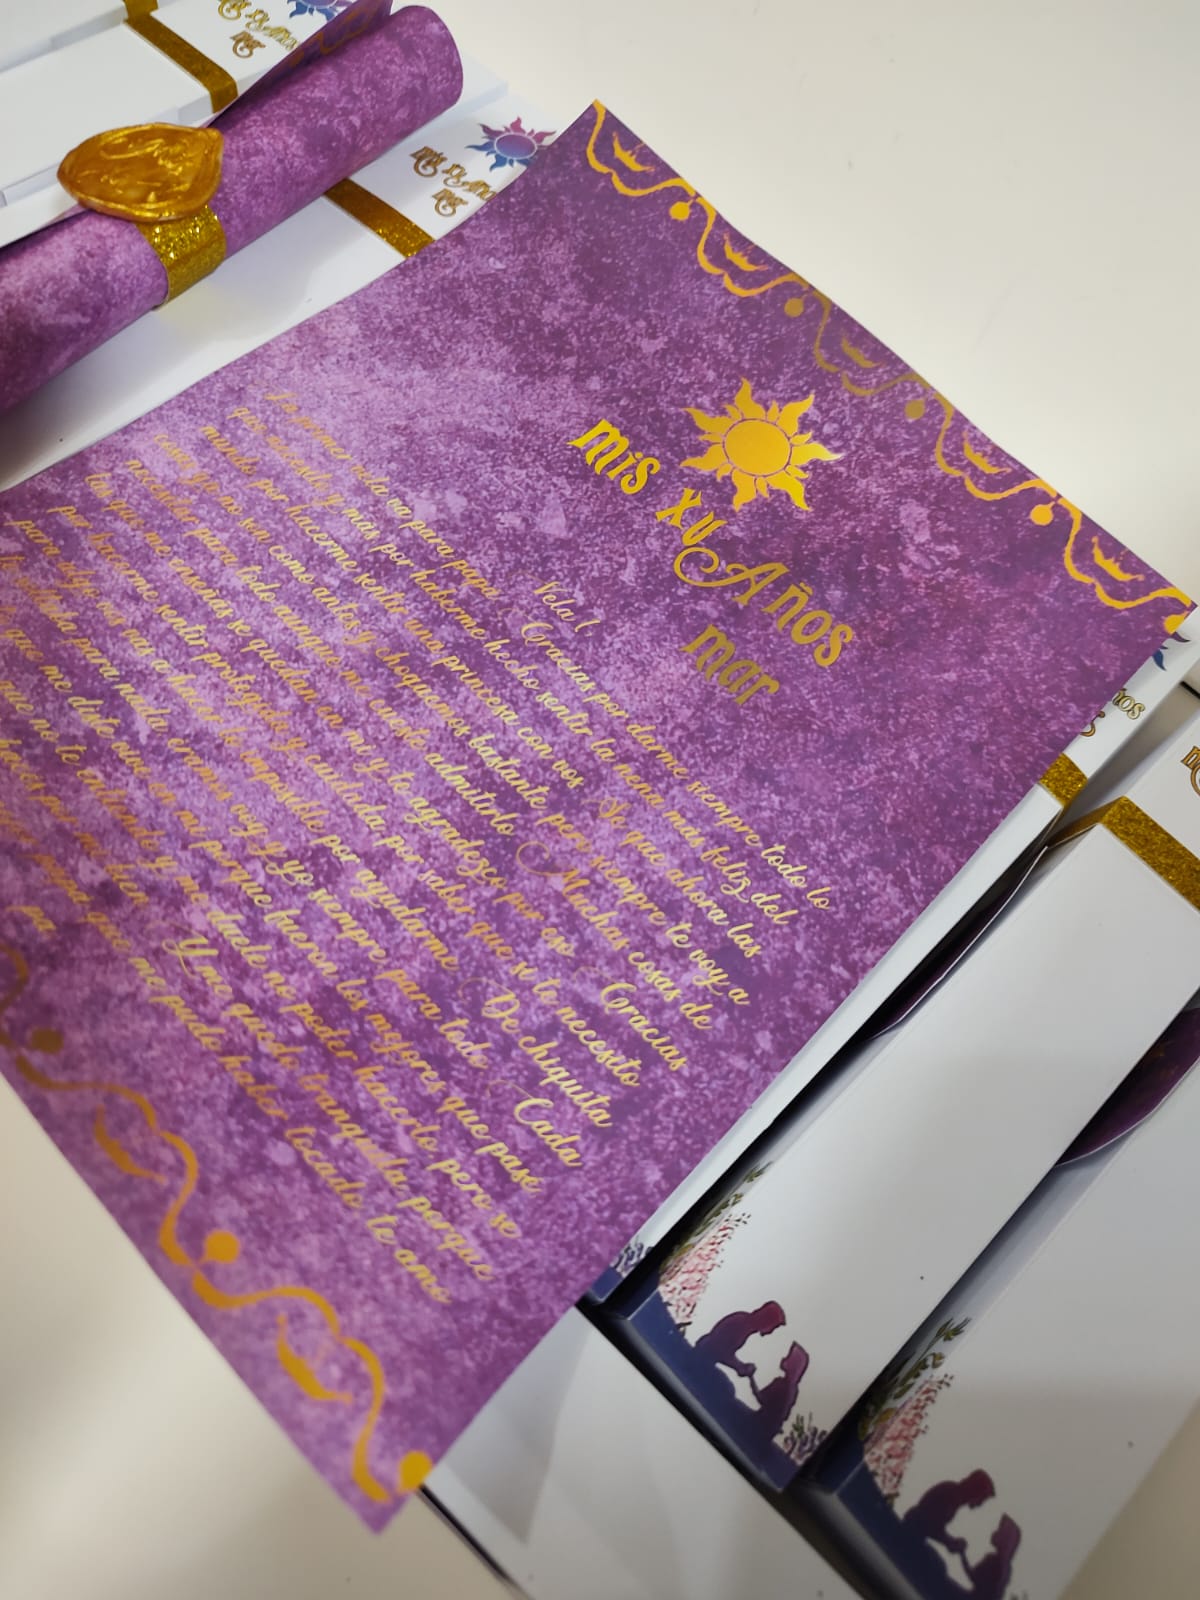 mis xv Años
mar
Vela 1
La primer vela va para papa Gracias por darme siempre todo lo
que necesito y más por haberme hecho sentir la nena más feliz del
mundo por hacerme sentir una princesa con vos Se que ahora las
cosas ya no son como antes y choquemos bastante pero siempre te voy a
necesitar para todo aunque me cueste admitirlo Muchas cosas de
las que me enseñas se quedan en mi y te agradezco por eso Gracias
por hacerme sentir protegida y cuidada por saber que si te necesito
para algo vos vas a hacer lo imposible por ayudarme De chiquita
para nada eramos vos y yo siempre para todo Cada
que me diste vive en mi porque fueron los mejores que pasé
que no te entiendo y me duele no poder hacerlo pero se
haces por mi bien Y me quedo tranquila porque
papa que me pudo haber tocado te amo
pa
mis xv Años
mar
mis xv Años
mar